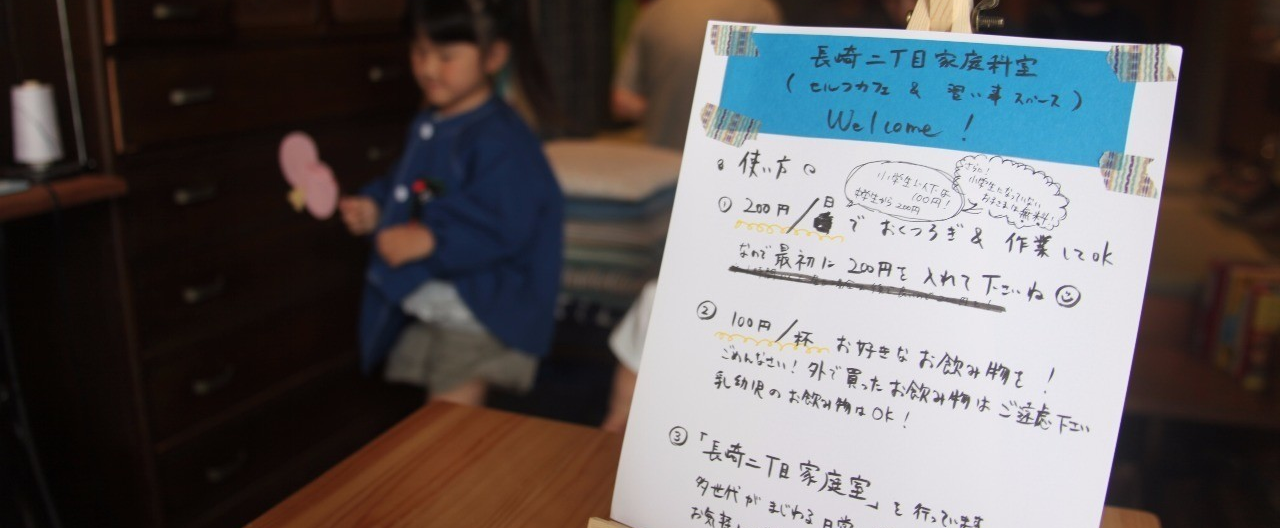 長崎二丁目家庭科室
(セルフカフェ & 習い事スペース)
Welcome!
使い方
小学生以下は
100円!
中学生から200円
さらに!
小学生になっていない
お子さまは無料!
① 200円/日 で おくつろぎ & 作業してOK
なので最初に 200円を 入れて下さいね
② 100円/杯 お好きなお飲み物を!
ごめんなさい!外で買ったお飲み物はご遠慮下さい
乳幼児のお飲み物はOK!
③「長崎二丁目家庭室」を行っています
多世代がまじわる日常
お気軽